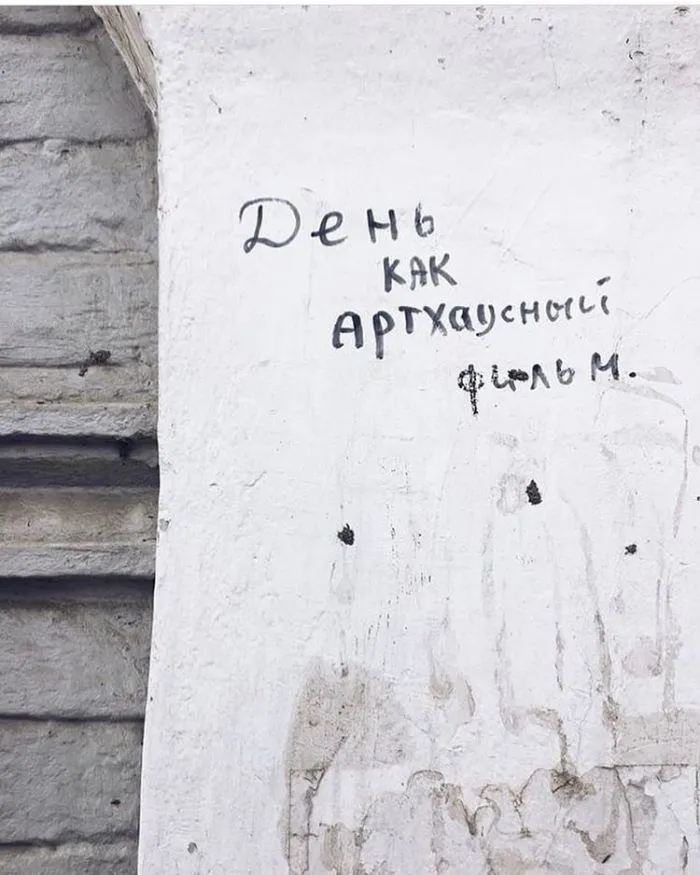 День
как
Артхаусный
фильм.